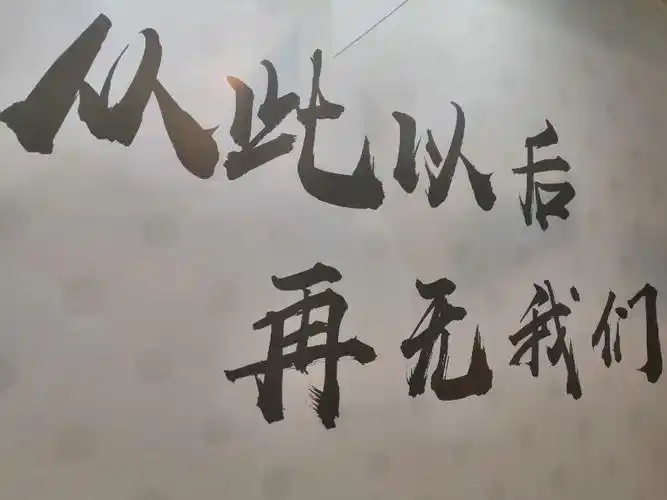 从此以后
再无我们